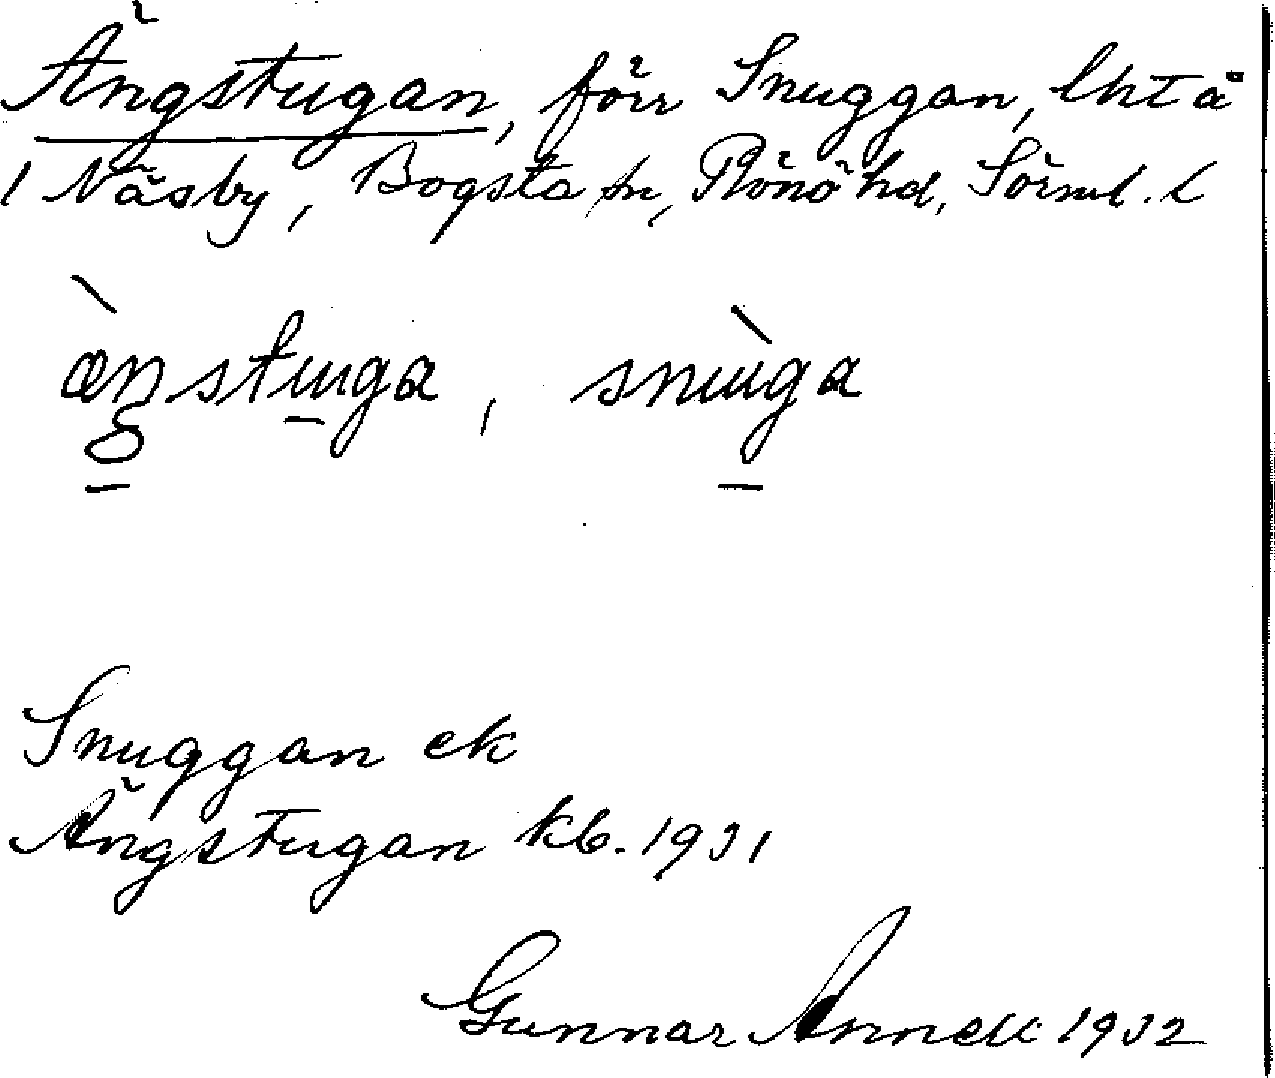 Ängstugan, förr Snuggan, lht å
1 Näsby, Bogsta sn, Rönö hd, Sörml. l
æ̀ŋstuga, snùga
Snuggan ek
Ängstugan kb. 1931
Gunnar Annell 1932